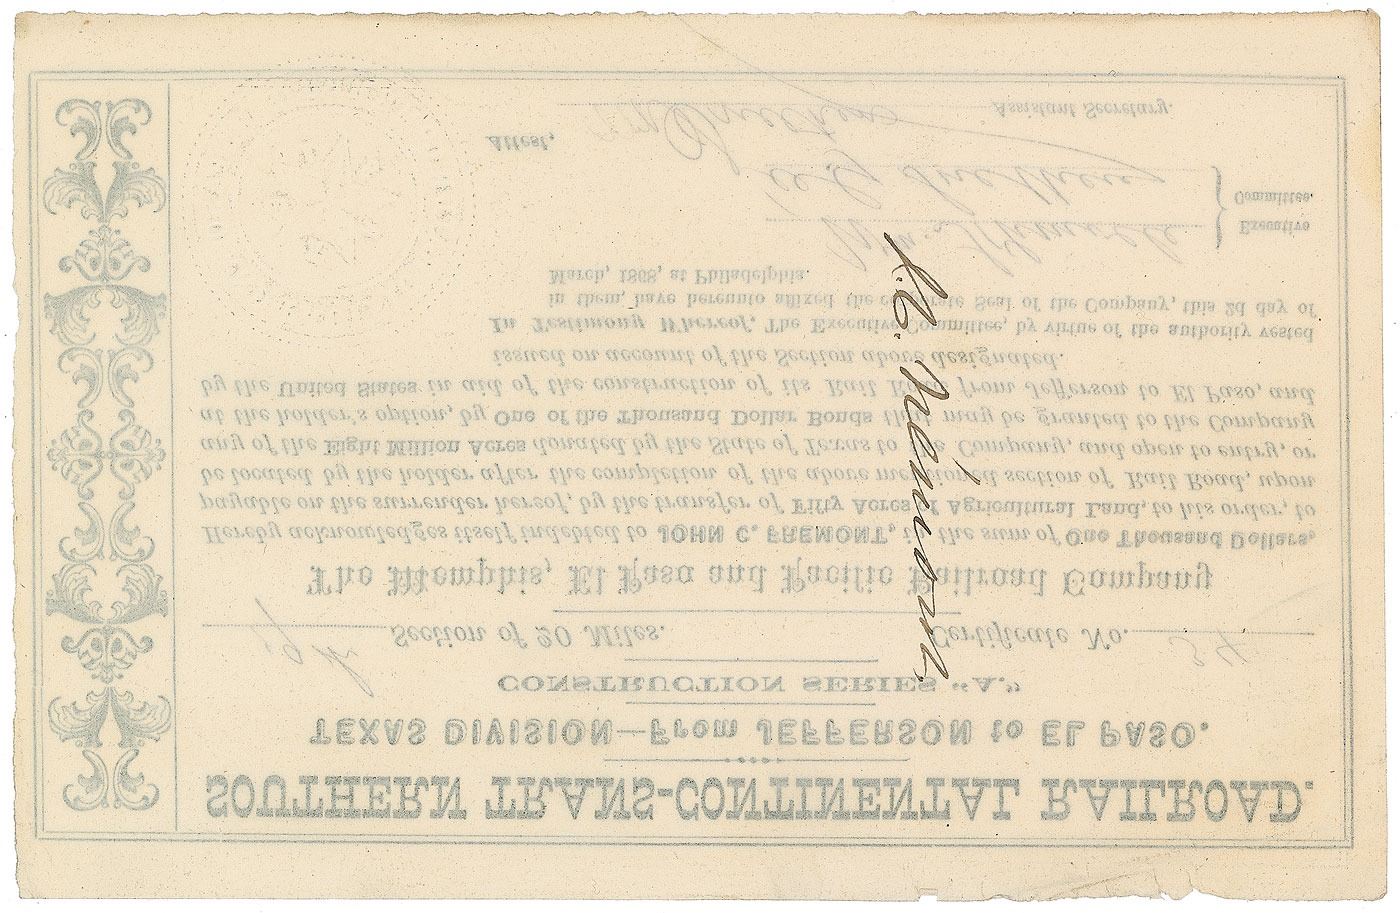 SOUTHERN TRANS-CONTINENTAL RAILROAD.
TEXAS DIVISION—From JEFFERSON to EL PASO.
CONSTRUCTION SERIES "A."
19th Section of 20 Miles. Certificate No. 34
The Memphis, El Paso and Pacific Railroad Company
Hereby acknowledges itself indebted to JOHN C. FREMONT, in the sum of One Thousand Dollars,
payable on the surrender hereof, by the transfer of Fifty Acres of Agricultural Land, to his order, to
be located by the holder after the completion of the above mentioned section of Rail Road, upon
any of the Eight Million Acres donated by the State of Texas to the Company, and open to entry, or
at the holder's option, by One of the Thousand Dollar Bonds that may be granted to the Company
by the United States in aid of the construction of its Rail Road from Jefferson to El Paso, and
issued on account of the Section above designated.
In Testimony Whereof, The Executive Committee, by virtue of the authority vested
in them, have hereunto affixed the corporate Seal of the Company, this 2d day of
March, 1868, at Philadelphia.
Executive
Committee.
Attest,
Assistant Secretary.
J. C. Frémont.